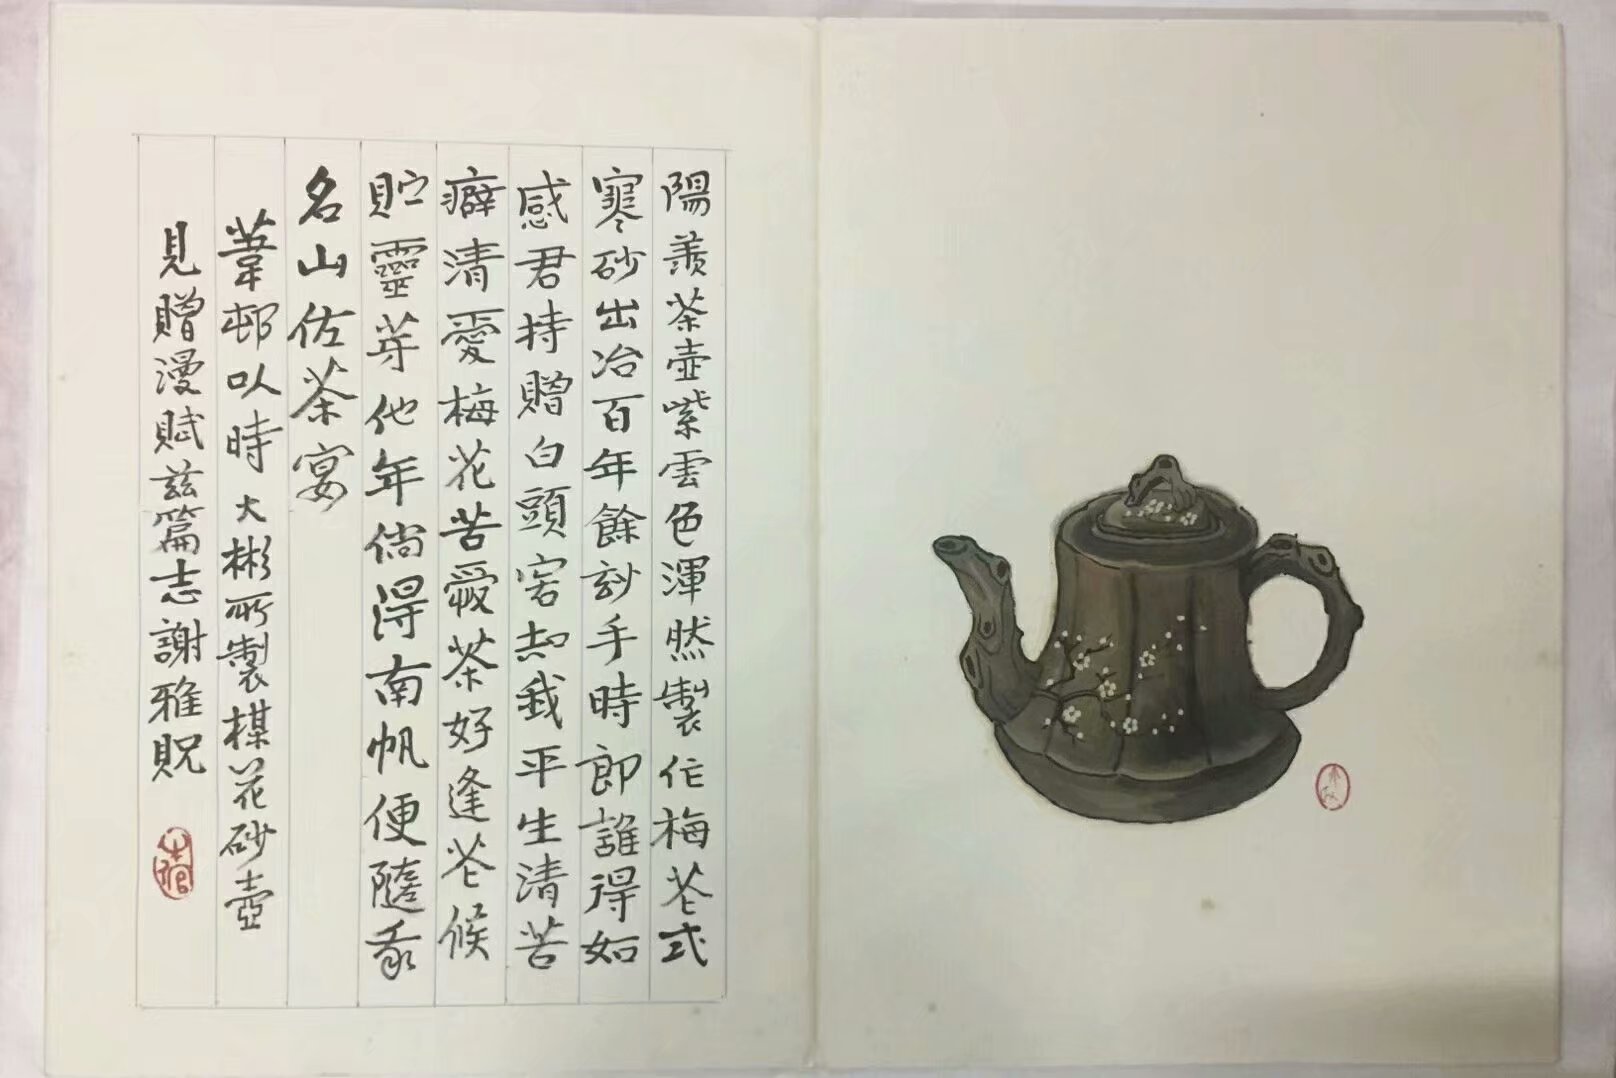 陽羨茶壺紫雲色渾然製作梅花式
寒砂出冶百年餘妙手時郎誰得如
感君持贈白頭客知我平生清苦
癖清愛梅花苦愛茶好逢花候
貯靈芽他年倘得南帆便隨我
名山佐茶宴
葦邨以時大彬所製楳花砂壺
見贈漫賦兹篇志謝雅貺